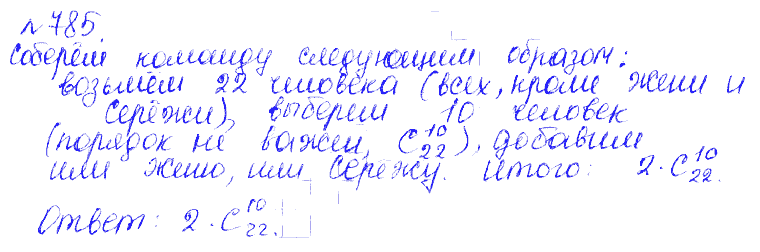 №785
Соберём команду следующим образом:
возьмём 22 человека (всех, кроме жени и
Серёжи), выберем 10 человек
(порядок не важен, C₂₂¹⁰), добавим
или женю, или Серёжу. Итого: 2·C₂₂¹⁰.
Ответ: 2·C₂₂¹⁰.